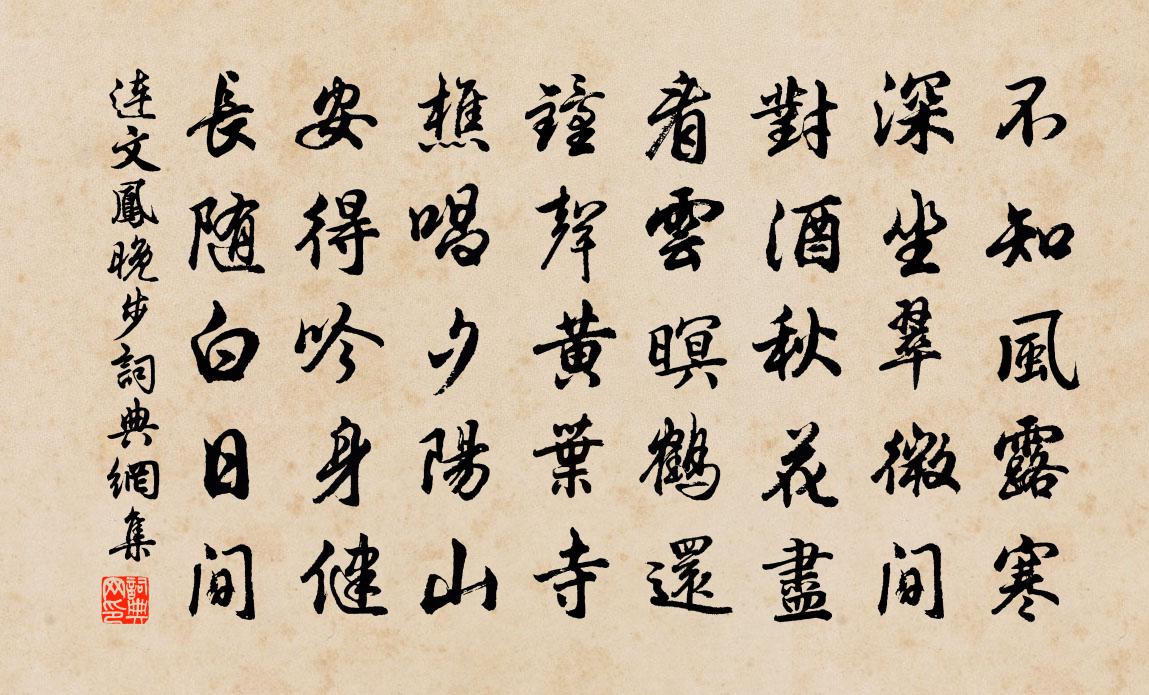 不知風露寒
深坐翠微间
對酒秋花盡
看雲暝鶴還
鐘聲黄葉寺
樵唱夕陽山
安得吟身健
長随白日间
连文鳳晚步詞典網集
詞典网印